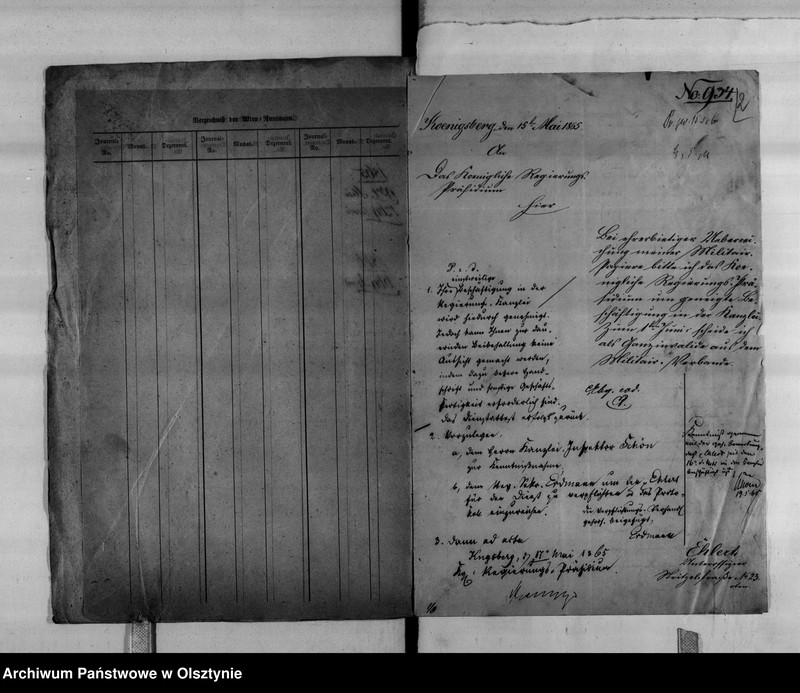 Verzeichniß der Akten-Nummern.
Journal-
No.
Monat.
Dezernent.
Journal-
No.
Monat.
Dezernent.
Journal-
No.
Monat.
Dezernent.
No. 954
2
Koenigsberg, den 15t. Mai 1865
An
Das Koenigliche Regierungs-
Präsidium
hier
Bei ehrerbietiger Ueberrei-
chung meiner Militair-
Papiere bitte ich das Koe-
nigliche Regierungs-Prä-
sidium um geneigte Be-
schäftigung in der Kanzlei.
Zum 1ten Juni scheide ich
als Ganzinvalide aus dem
Militair-Verbande.
einstweilige
1. Ihre Beschäftigung in der
Regierungs-Kanzlei
wird hiedurch genehmigt.
Jedoch kann Ihnen zur dau-
ernden Beibehaltung keine
Aussicht gemacht werden,
indem dazu bessere Hand-
schrift und sonstige Geschäfts-
fertigkeit erforderlich sind.
Das Dienstattest erfolgt zurück.
2. Vorzulegen.
a, dem Herrn Kanzlei-Inspektor
zur Kenntnißnahme,
b, dem Reg. Sekr. Erdmann um den Ehlert
für den Dienst zu verpflichten u das Proto-
koll einzureichen.
die Verpflichtungs-Verhandl.
gehors. beigefügt.
Erdmann
3. dann ad acta
Kngsberg, d 17 Mai 1865
Kgl. Regierungs-Präsidium.
Kenntniß genommen
19.5.65
Ehlert
Unteroffizier
No 23
Archiwum Państwowe w Olsztynie